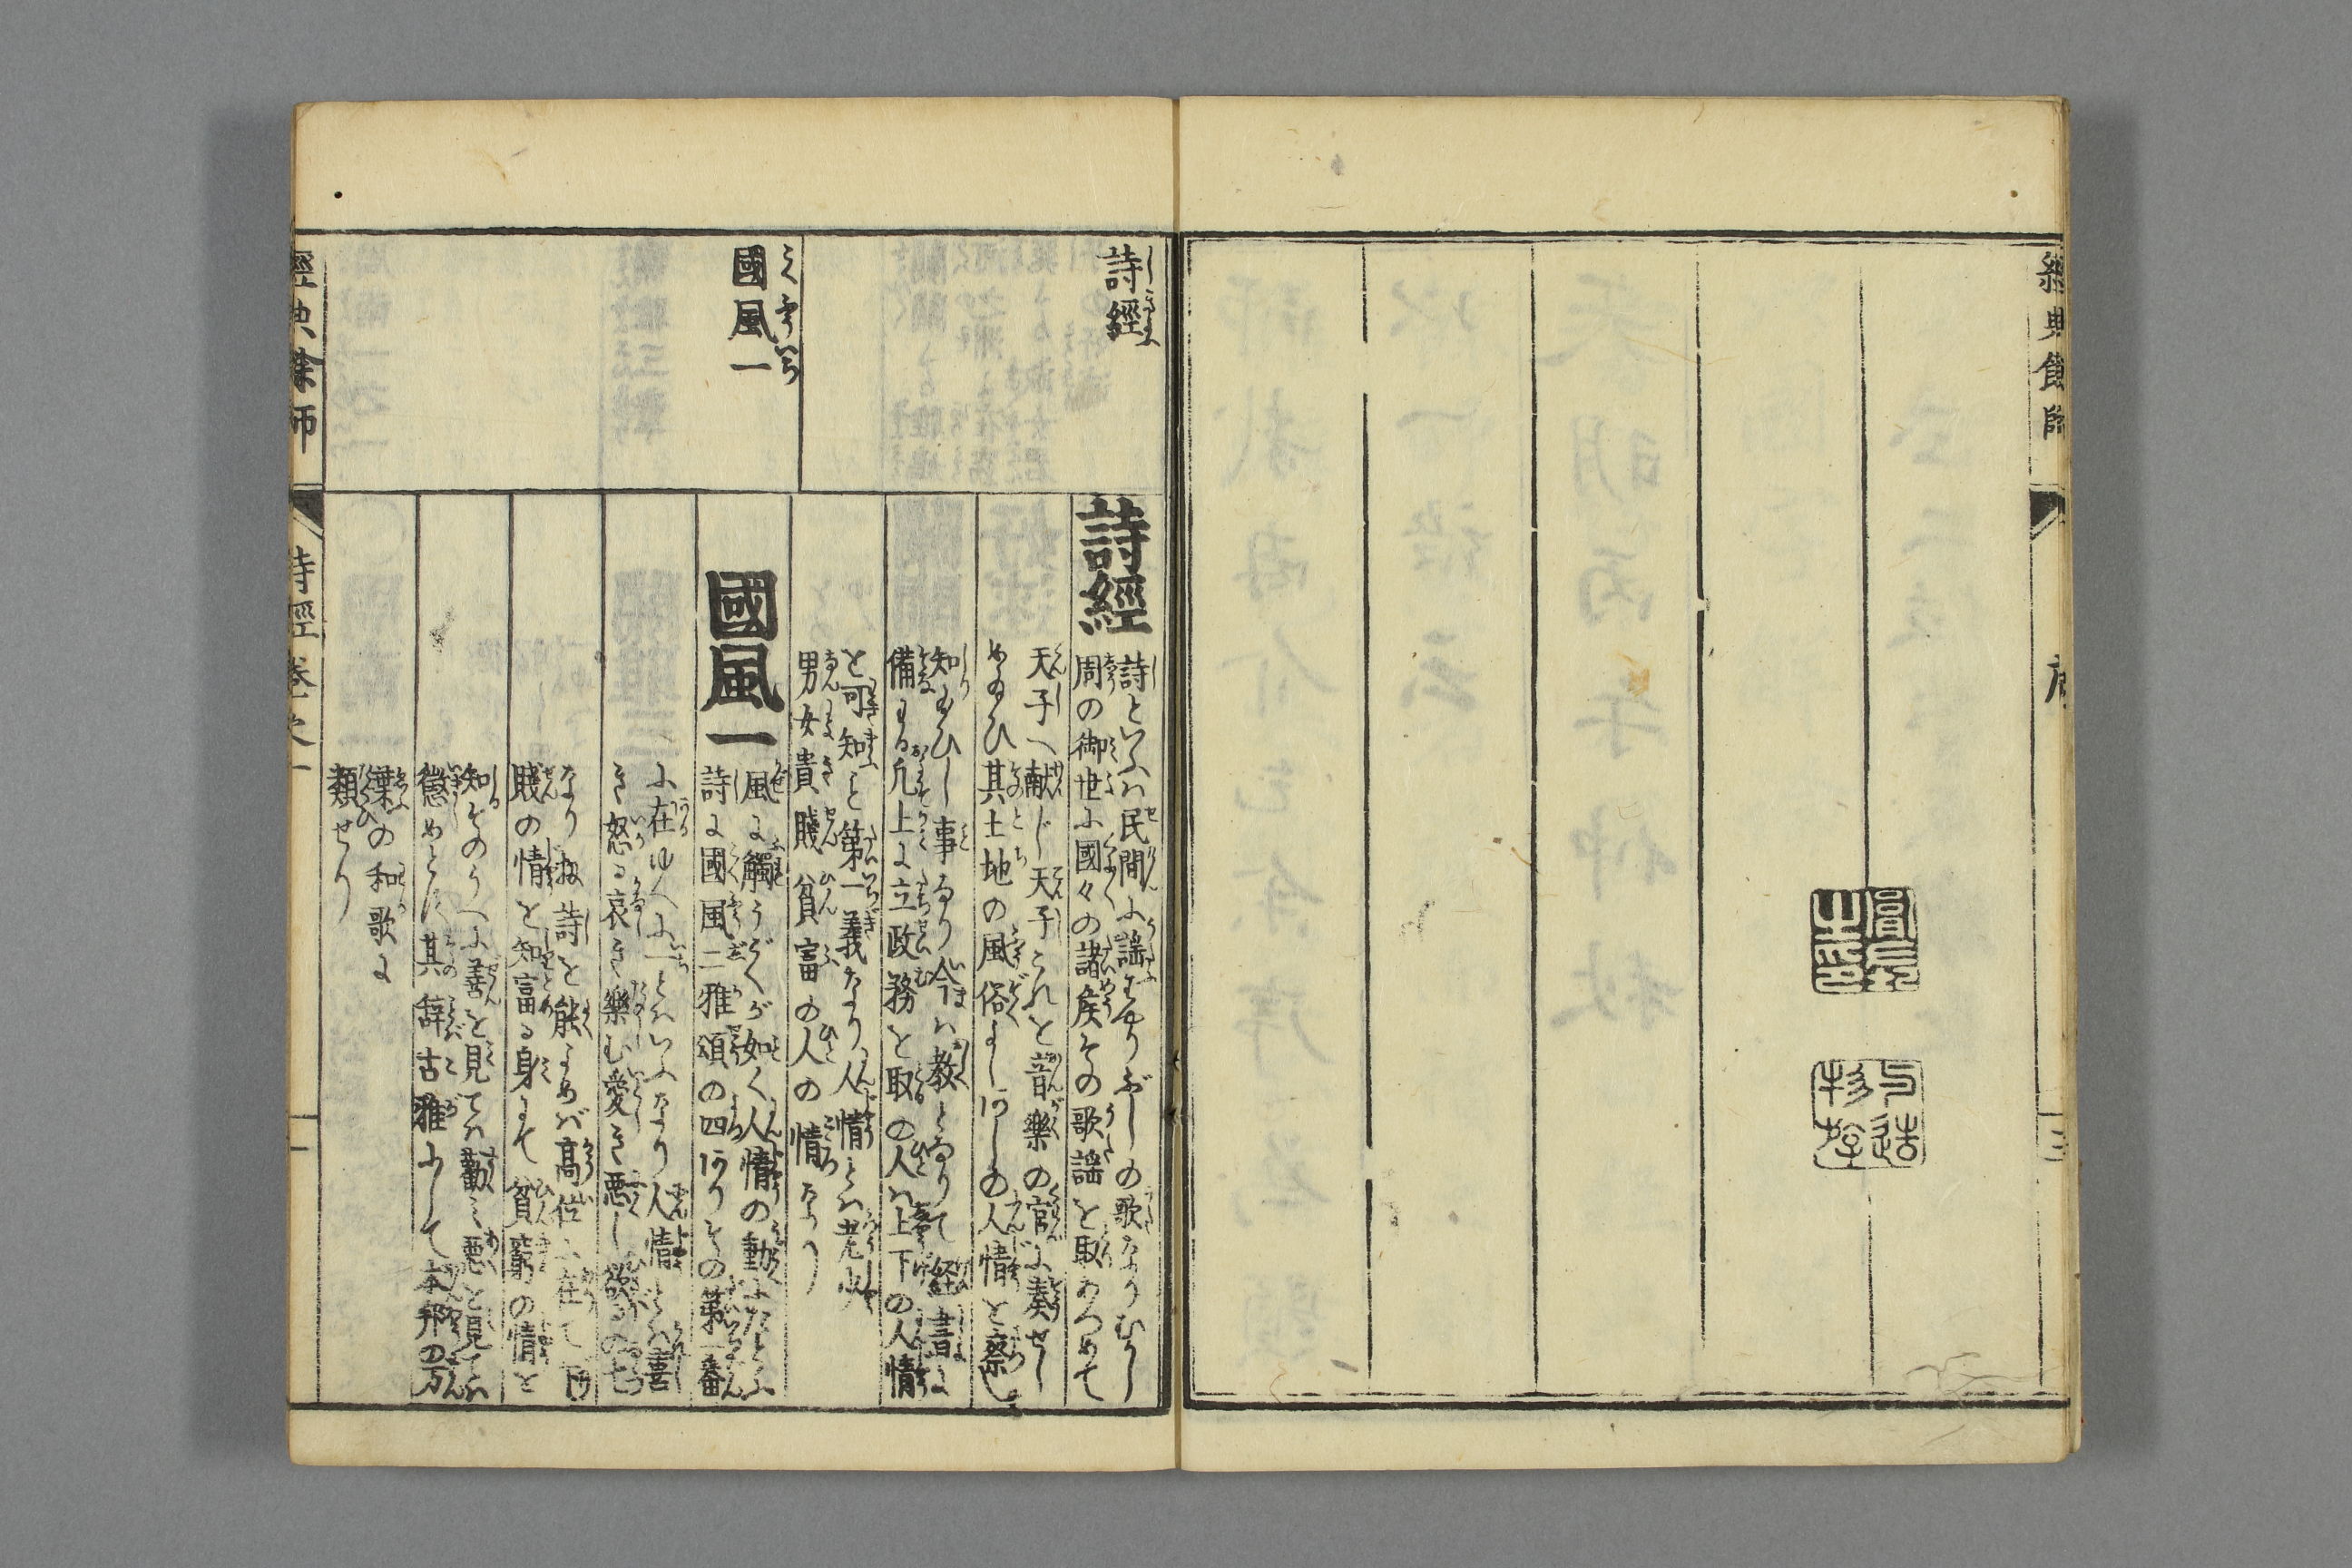 經典餘師
序
三
詩經
しきやう
國風一
こくふういち
詩經
詩といふハ民間に謡はやりぶしの歌なりむかし
周の御世に國々の諸矦その歌謡を取あつめて
天子へ献じ天子これを音樂の官に奏せし
めたまひ其土地の風俗よしあしの人情を察し
知たまひし事なり今ハ教となりて経書に
備はる凡上に立政務を取の人ハ上下の人情
を可知こと第一義なり人情とハ老少
男女貴賤貧富の人の情なり
國風一
風に觸うごくが如く人情の動にたとふ
詩に國風二雅頌の四ありその第一番
に在ゆへに一とはいふなり人情とハ喜
き怒る哀き樂む愛き悪し欲るの七つ
なり扨詩を能よめバ高位に在て下
賤の情を知富る身にて貧窮の情を
知そのうへに善を見てハ勸ミ悪を見てハ
懲めとす其辞古雅にして本邦の万
葉の和歌に
類せり
經典餘師
詩經卷之一
一